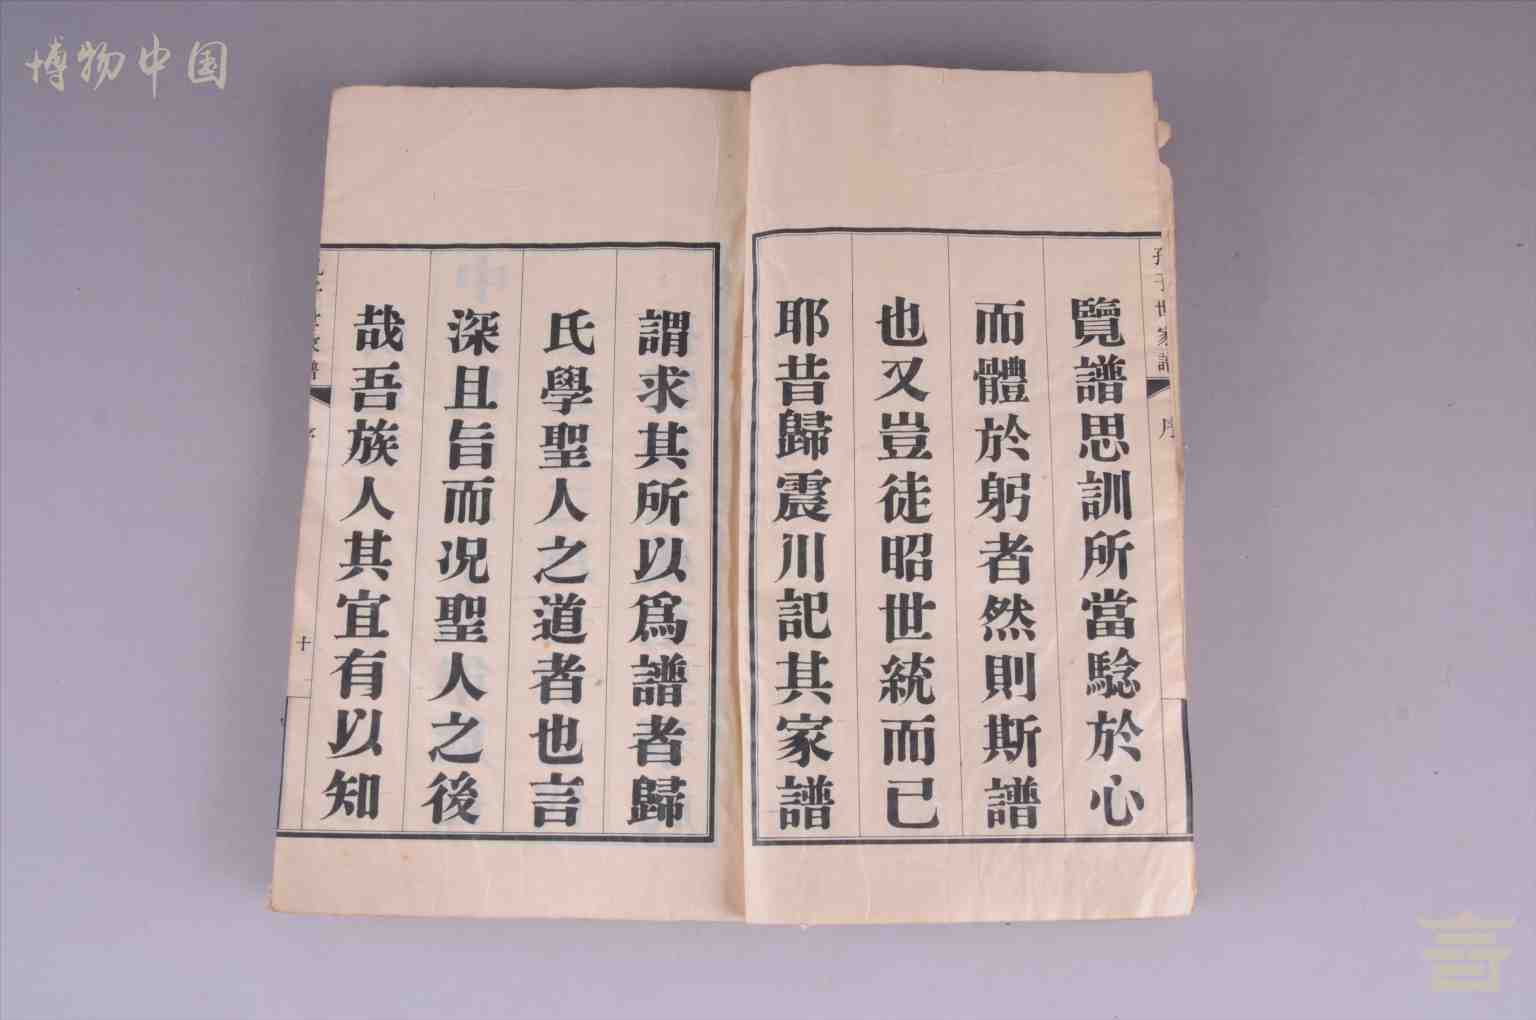 博物中国
孔子世家譜
序
覽譜思訓所當騐於心
而體於躬者然則斯譜
也又豈徒昭世統而已
耶昔歸震川記其家譜
謂求其所以爲譜者歸
氏學聖人之道者也言
深且旨而况聖人之後
哉吾族人其宜有以知
十